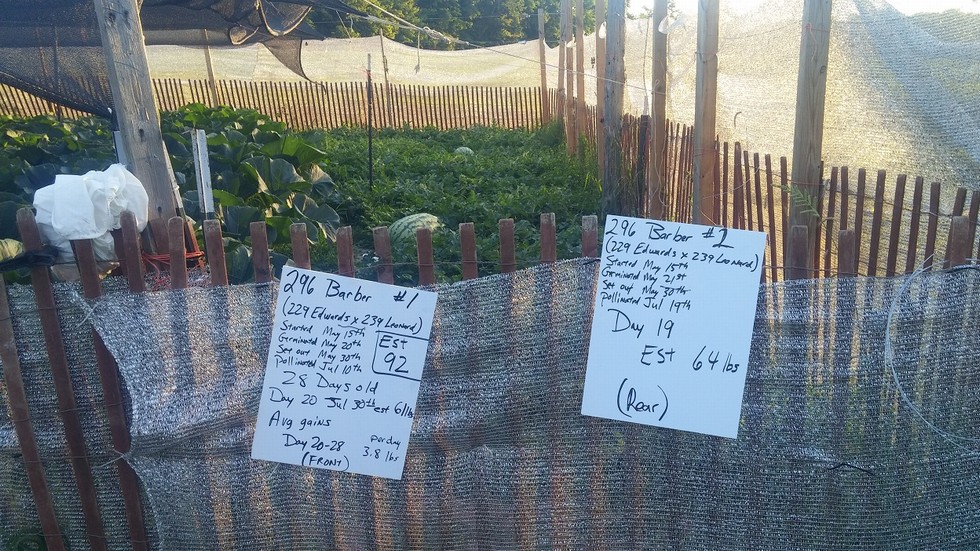 296 Barber #1
(229 Edwards x 239 Leonard)
Started May 15th
Germinated May 20th
Set out May 30th
Pollinated Jul 10th
Est
92
28 Days old
Day 20 Jul 30th est 61 lbs
Avg gains
Day 20-28 per day
3.8 lbs
(FRONT)
296 Barber #1
(229 Edwards x 239 Leonard)
Started May 15th
Germinated May 21st
Set out May 30th
Pollinated Jul 19th
Day 19
Est 64 lbs
(Rear)